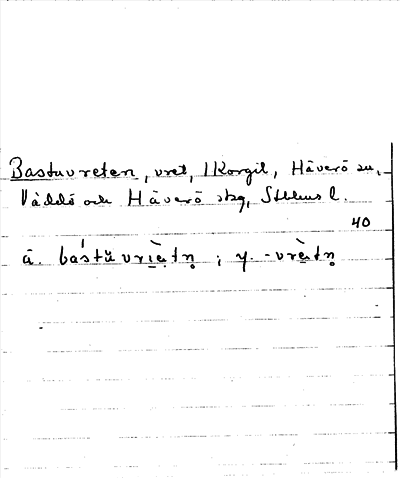 Bastuvreten, vret, Korgil, Häverö sn,
Väddö och Häverö skg, Sthlms l.
40
ä. bástŭvrìe̯tn̥ ; y. -vrètn̥